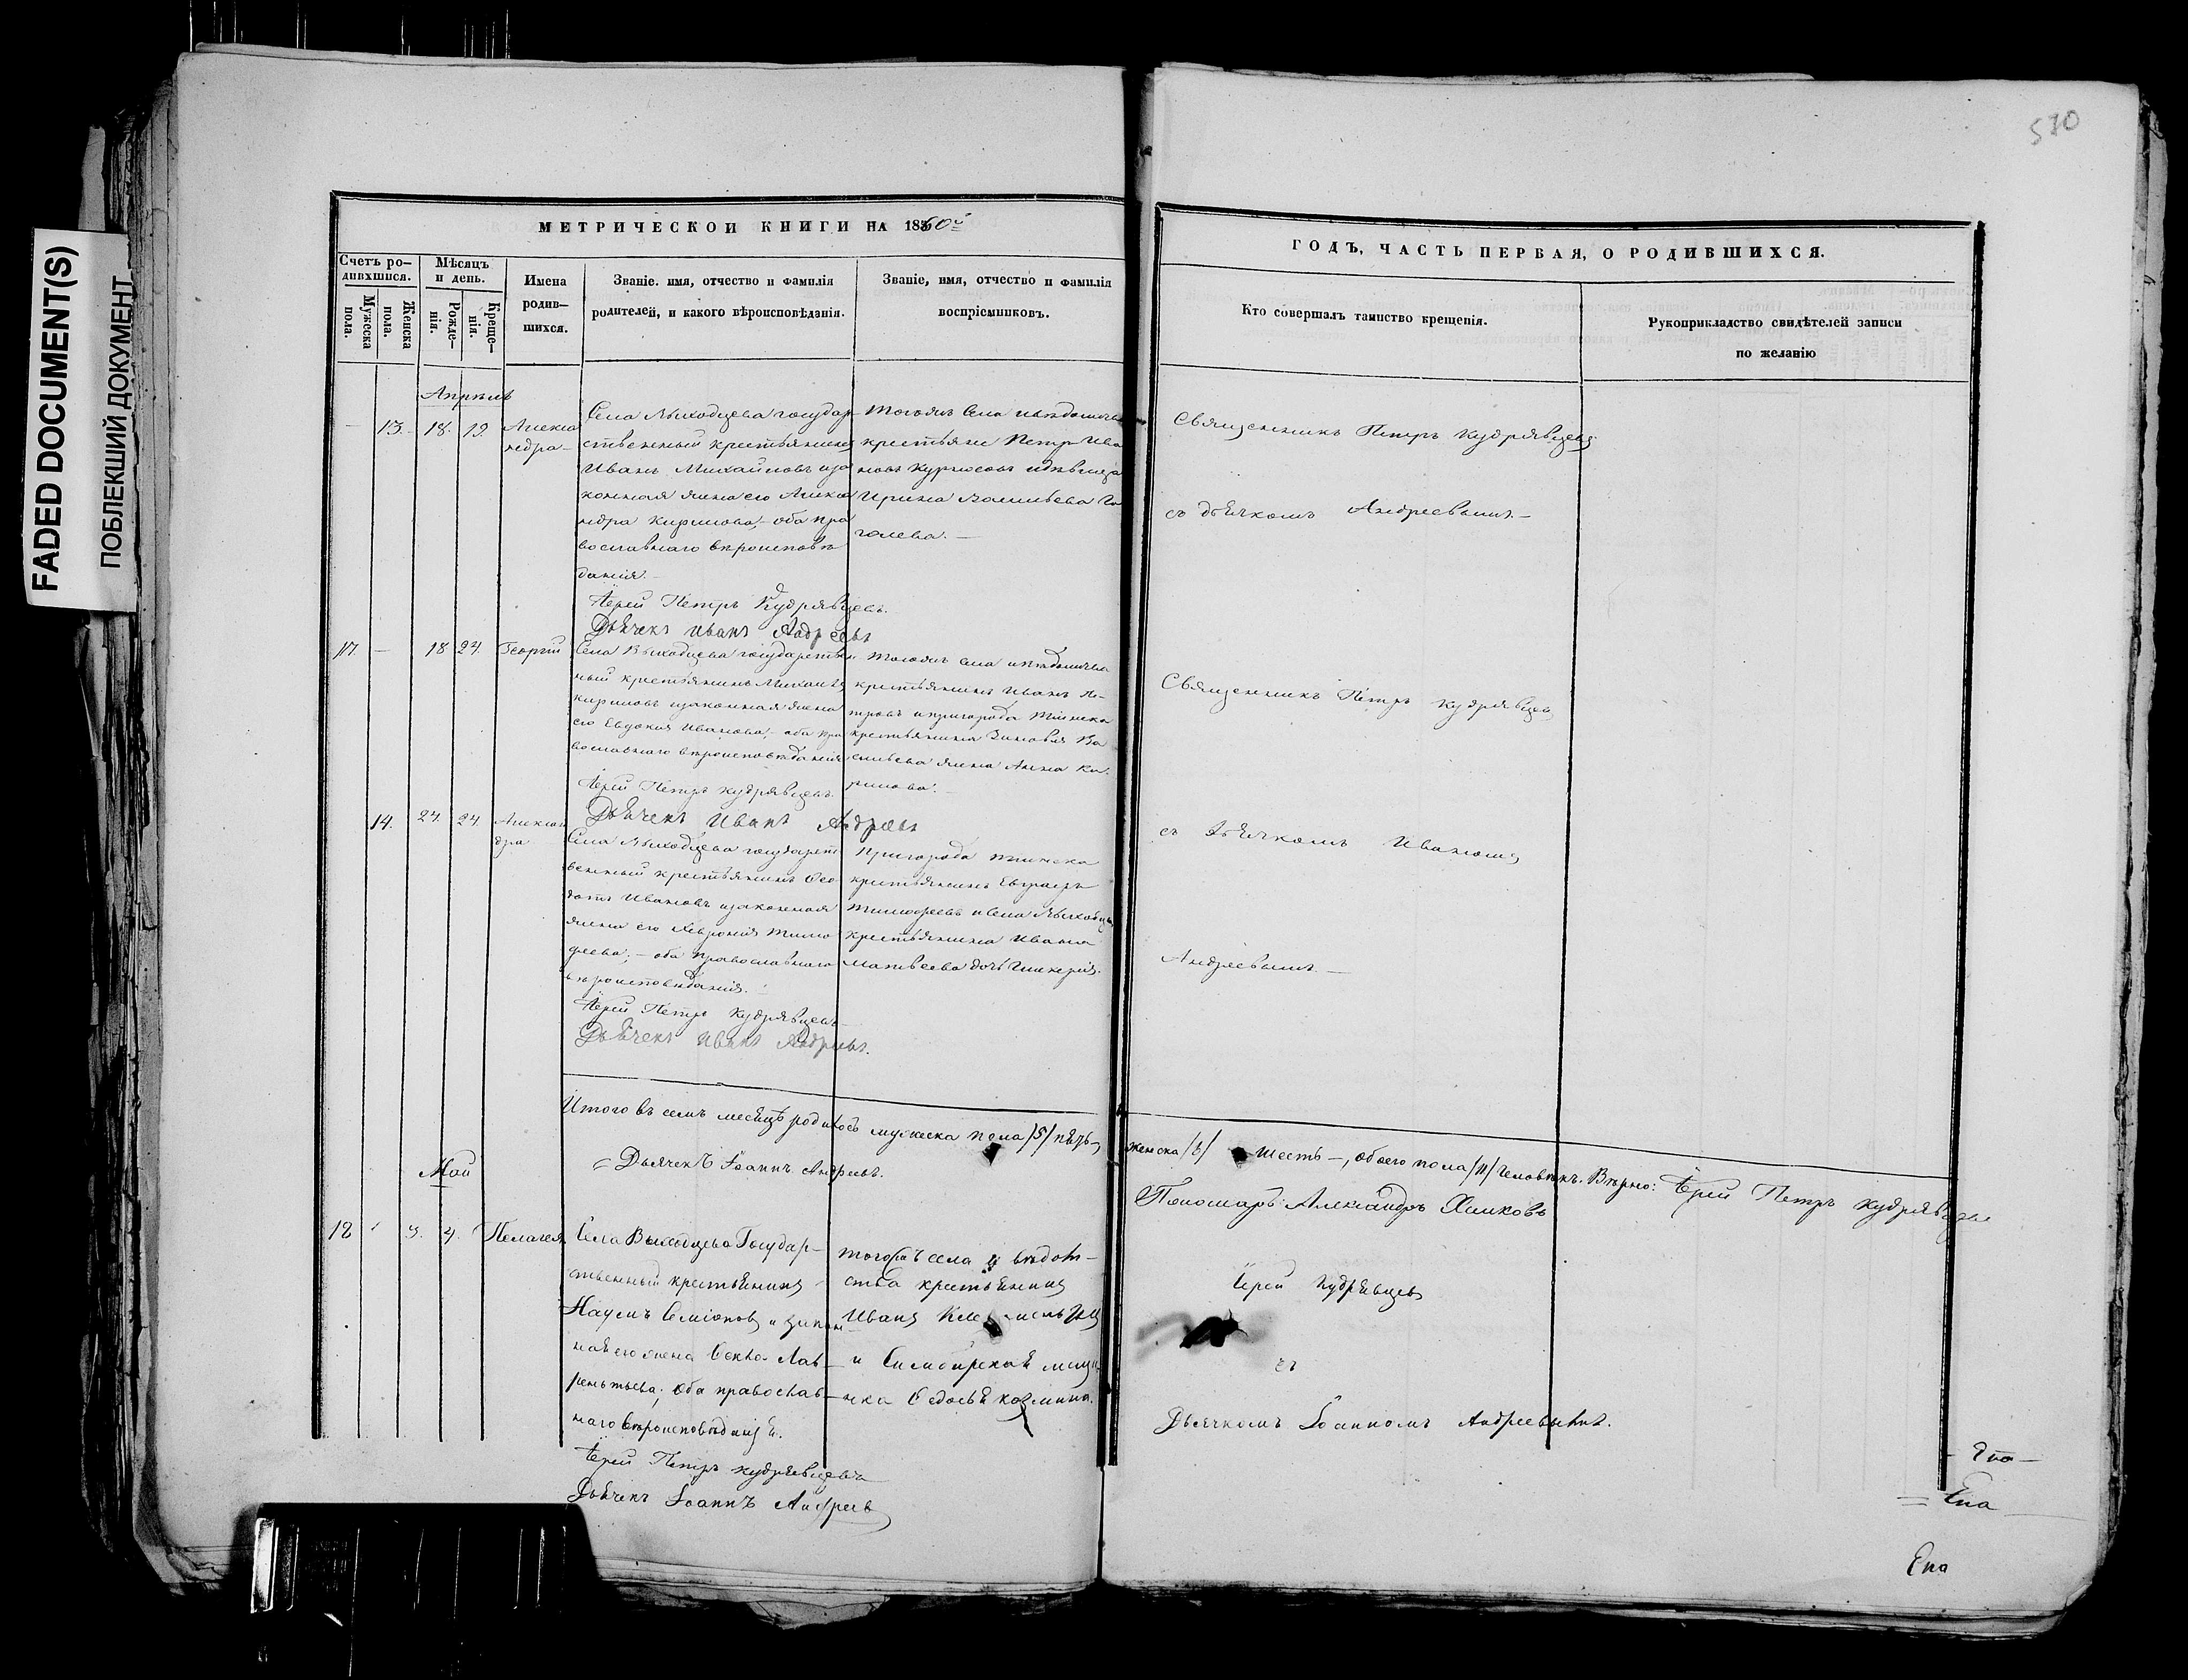 FADED DOCUMENT(S)
ПОБЛЕКШИЙ ДОКУМЕНТ
570
МЕТРИЧЕСКОЙ КНИГИ НА 1860й
ГОДЪ, ЧАСТЬ ПЕРВАЯ, О РОДИВШИХСЯ.
Счетъ ро-
дившихся.
Мужеска
пола.
Женска
пола.
Мѣсяцъ
и день.
Рожде-
нія.
Креще-
нія.
Имена
родив-
шихся.
Званіе. имя, отчество и фамилія
родителей, и какого вѣроисповѣданія.
Званіе, имя, отчество и фамилія
воспріемниковъ.
Кто совершалъ таинство крещенія.
Рукоприкладство свидѣтелей записи
по желанію
Апрѣль
— 13. 18. 19. Алекса
ндра
Села Выходцева государ-
ственный крестьянинъ
Иванъ Михайловъ иза
конная жена его Алекса
ндра Кирилова, оба пра
вославнаго вѣроисповѣ
данія. —
Іерей Петръ Кудрявцевъ.
Дьячекъ Иванъ Андреевъ
Тогожъ села
крестьяне Петръ Ива
новъ
Ирина Васильева Го
голева. —
Священникъ Петръ Кудрявцевъ
съ дьячкомъ Андреевымъ. —
17 — 18 24. Георгій
Села Выходцева государствен
ный крестьянинъ Михаилъ
Кириловъ изаконная жена
его Евдокія Иванова, оба пра
вославнаго вѣроисповѣданія
Іерей Петръ Кудрявцевъ.
Дьячекъ Иванъ Андреевъ
Тогожъ села
крестьянинъ Иванъ Пе-
тровъ и пригорода Тіинска
крестьянина Зиновія Ва
сильева жена Анна Ки-
рилова. —
Священникъ Петръ Кудрявцевъ
съ Дьячкомъ Иваномъ
Андреевымъ. —
14. 24. 24 Алексан
дра
Села Выходцева государст
венный крестьянинъ Ѳео
дотъ Ивановъ изаконная
жена его Февронія Тимо
феева; — оба православнаго
вѣроисповѣданія. —
Іерей Петръ Кудрявцевъ
Дьячекъ Иванъ Андреевъ.
Пригорода Тиинска
крестьянинъ Евграфъ
Тимофеевъ и села Выходцева
крестьянина Ивана
Матвеева дочь Гликерія.
Итого въ семъ месяцѣ родилось мужеска пола /5/ пять, женска /6/ шесть —, обоего пола /11/ Человѣкъ. Вѣрно: Іерей Петръ Кудрявцевъ
= Дьячекъ Іоаннъ Андреевъ.
Пономарь Александръ Хилковъ
Май
18 3. 4. Пелагея
Села Выходцева Государ-
ственный крестьянинъ
Наумъ Семіоновъ и закон
ная его жена Ѳекла Лав-
рентьева; оба православ-
наго вѣроисповѣданія.
Іерей Петръ Кудрявцевъ
Дьячекъ Іоаннъ Андреевъ
тогожъ села и вѣдом-
ства крестьянинъ
Иванъ
и Симбирская меща-
нка Ѳедосья Козмина.
Іерей Кудрявцевъ
съ
Дьячкомъ Іоанномъ Андреевымъ.